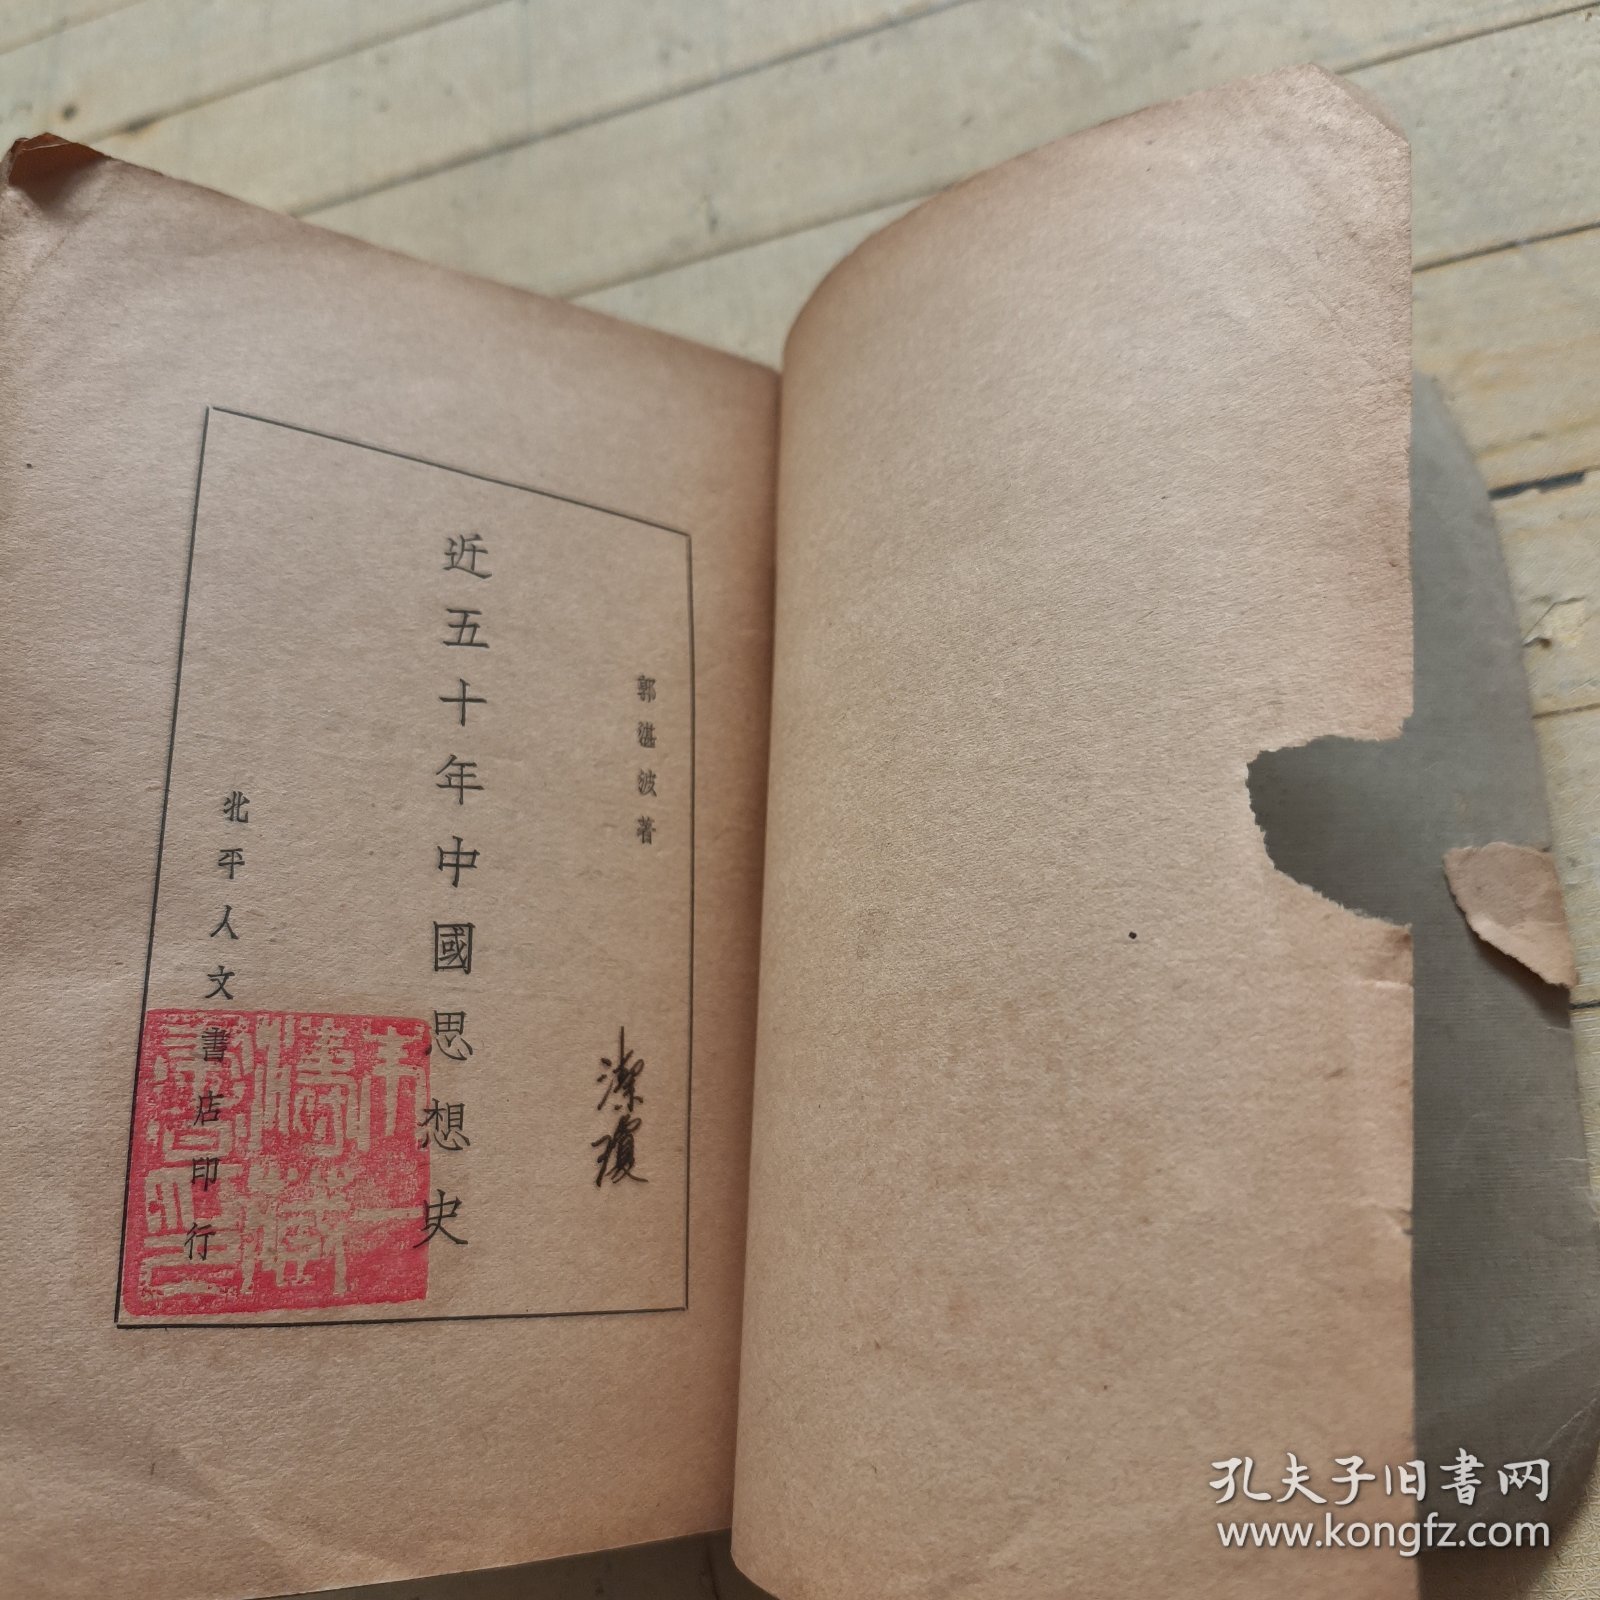 郭湛波著
近五十年中國思想史
北平人文書店印行
潔瓊
孔夫子旧书网
www.kongfz.com